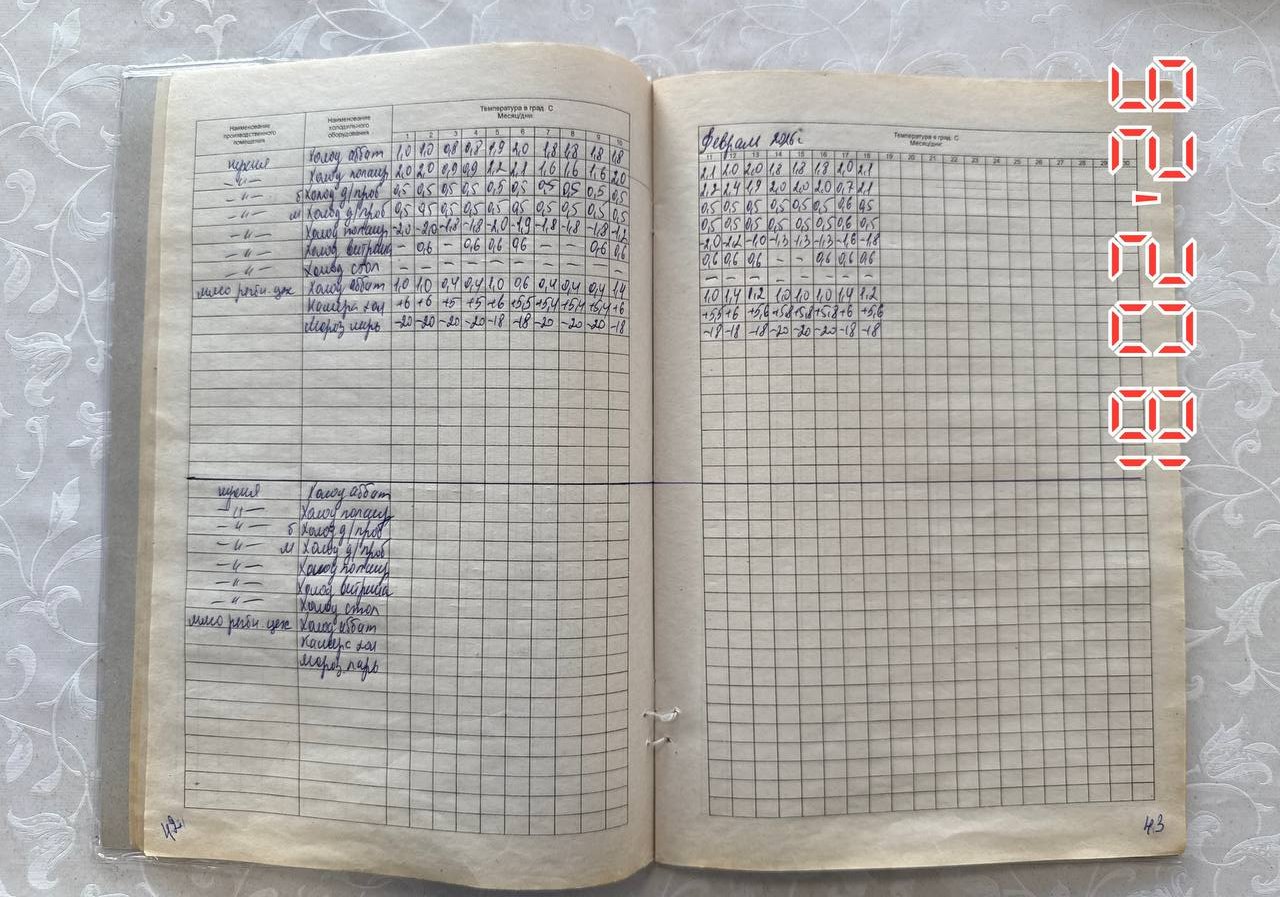 Наименование производственного помещения Наименование холодильного оборудования Температура в град. С Месяц/дни
1 2 3 4 5 6 7 8 9 10
кухня Холод аббат 1,0 1,0 0,8 0,8 1,9 2,0 1,8 1,8 1,8 1,8
— " — Холод 2,0 2,0 0,9 0,9 2,2 2,1 1,6 1,6 1,6 2,0
— " — б Холод д/проб 0,5 0,5 0,5 0,5 0,5 0,5 0,5 0,5 0,5 0,5
— " — м Холод д/проб 0,5 0,5 0,5 0,5 0,5 0,5 0,5 0,5 0,5 0,5
— " — Холод -2,0 -2,0 -1,8 -1,8 -2,0 -1,9 -1,8 -1,8 -1,8 -1,2
— " — Холод витрина — 0,6 — 0,6 0,6 0,6 — — 0,6 0,6
— " — Холод стол — — — — — — — — — —
мясо рыбн. цех Холод аббат 1,0 1,0 0,4 0,4 1,0 0,6 0,4 0,4 0,4 1,4
Камера хол +6 +6 +5 +5 +6 +5,5 +5,4 +5,4 +5,4 +6
Мороз ларь -20 -20 -20 -20 -18 -18 -20 -20 -20 -18
кухня Холод аббат
— " — Холод
— " — б Холод д/проб
— " — м Холод д/проб
— " — Холод
— " — Холод витрина
— " — Холод стол
мясо рыбн. цех Холод аббат
Камера хол
Мороз ларь
42
Февраль 2026г
Температура в град. С
Месяц/дни
11 12 13 14 15 16 17 18 19 20 21 22 23 24 25 26 27 28 29 30
2,1 2,0 2,0 1,8 1,8 1,8 2,0 2,1
2,2 2,4 1,9 2,0 2,0 2,0 0,7 2,1
0,5 0,5 0,5 0,5 0,5 0,5 0,6 0,5
0,5 0,5 0,5 0,5 0,5 0,5 0,6 0,5
-2,0 -2,2 -1,0 -1,3 -1,3 -1,3 -1,6 -1,8
0,6 0,6 0,6 — — 0,6 0,6 0,6
— — — — — — —
1,0 1,4 1,2 1,0 1,0 1,0 1,4 1,2
+5,5 +6 +5,6 +5,8 +5,8 +5,8 +6 +5,6
-18 -18 -18 -20 -20 -20 -18 -18
43
18 02 '26